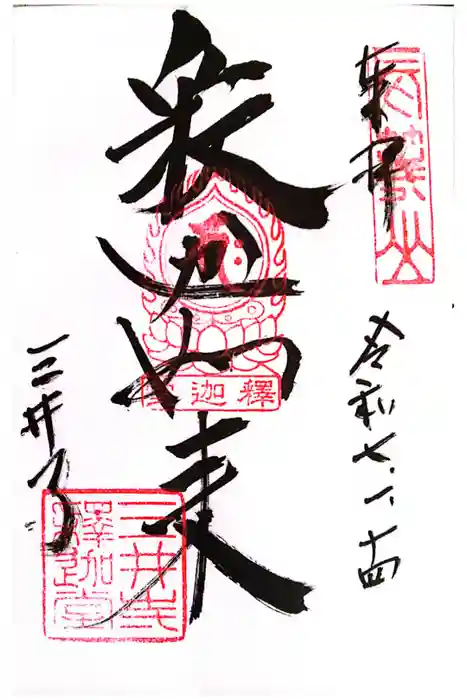 奉拝
長等山
令和七
十四
釈迦如来
釋迦堂
三井寺
三井寺
釋迦堂